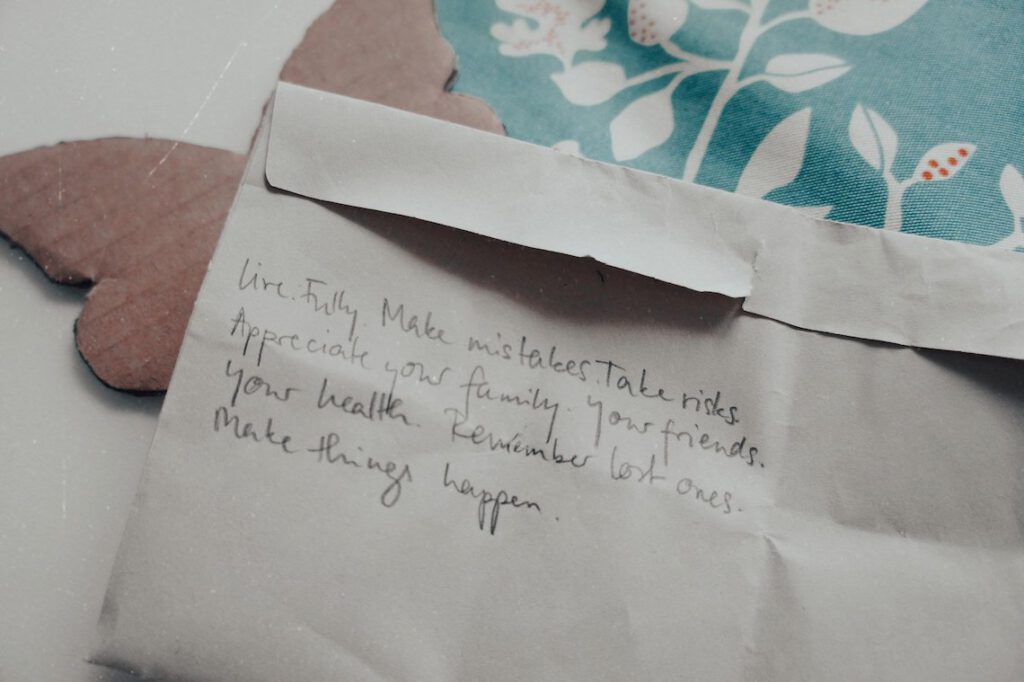 Live. Fully. Make mistakes. Take risks.
Appreciate your family. Your friends.
Your health. Remember lost ones.
Make things happen.